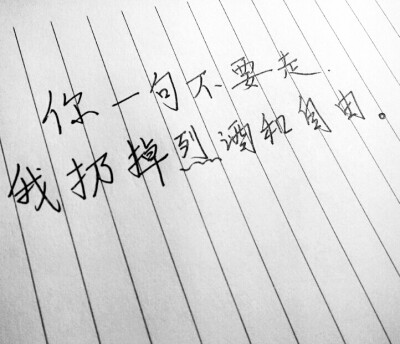 你一句不要走.
我扔掉烈酒和自由。